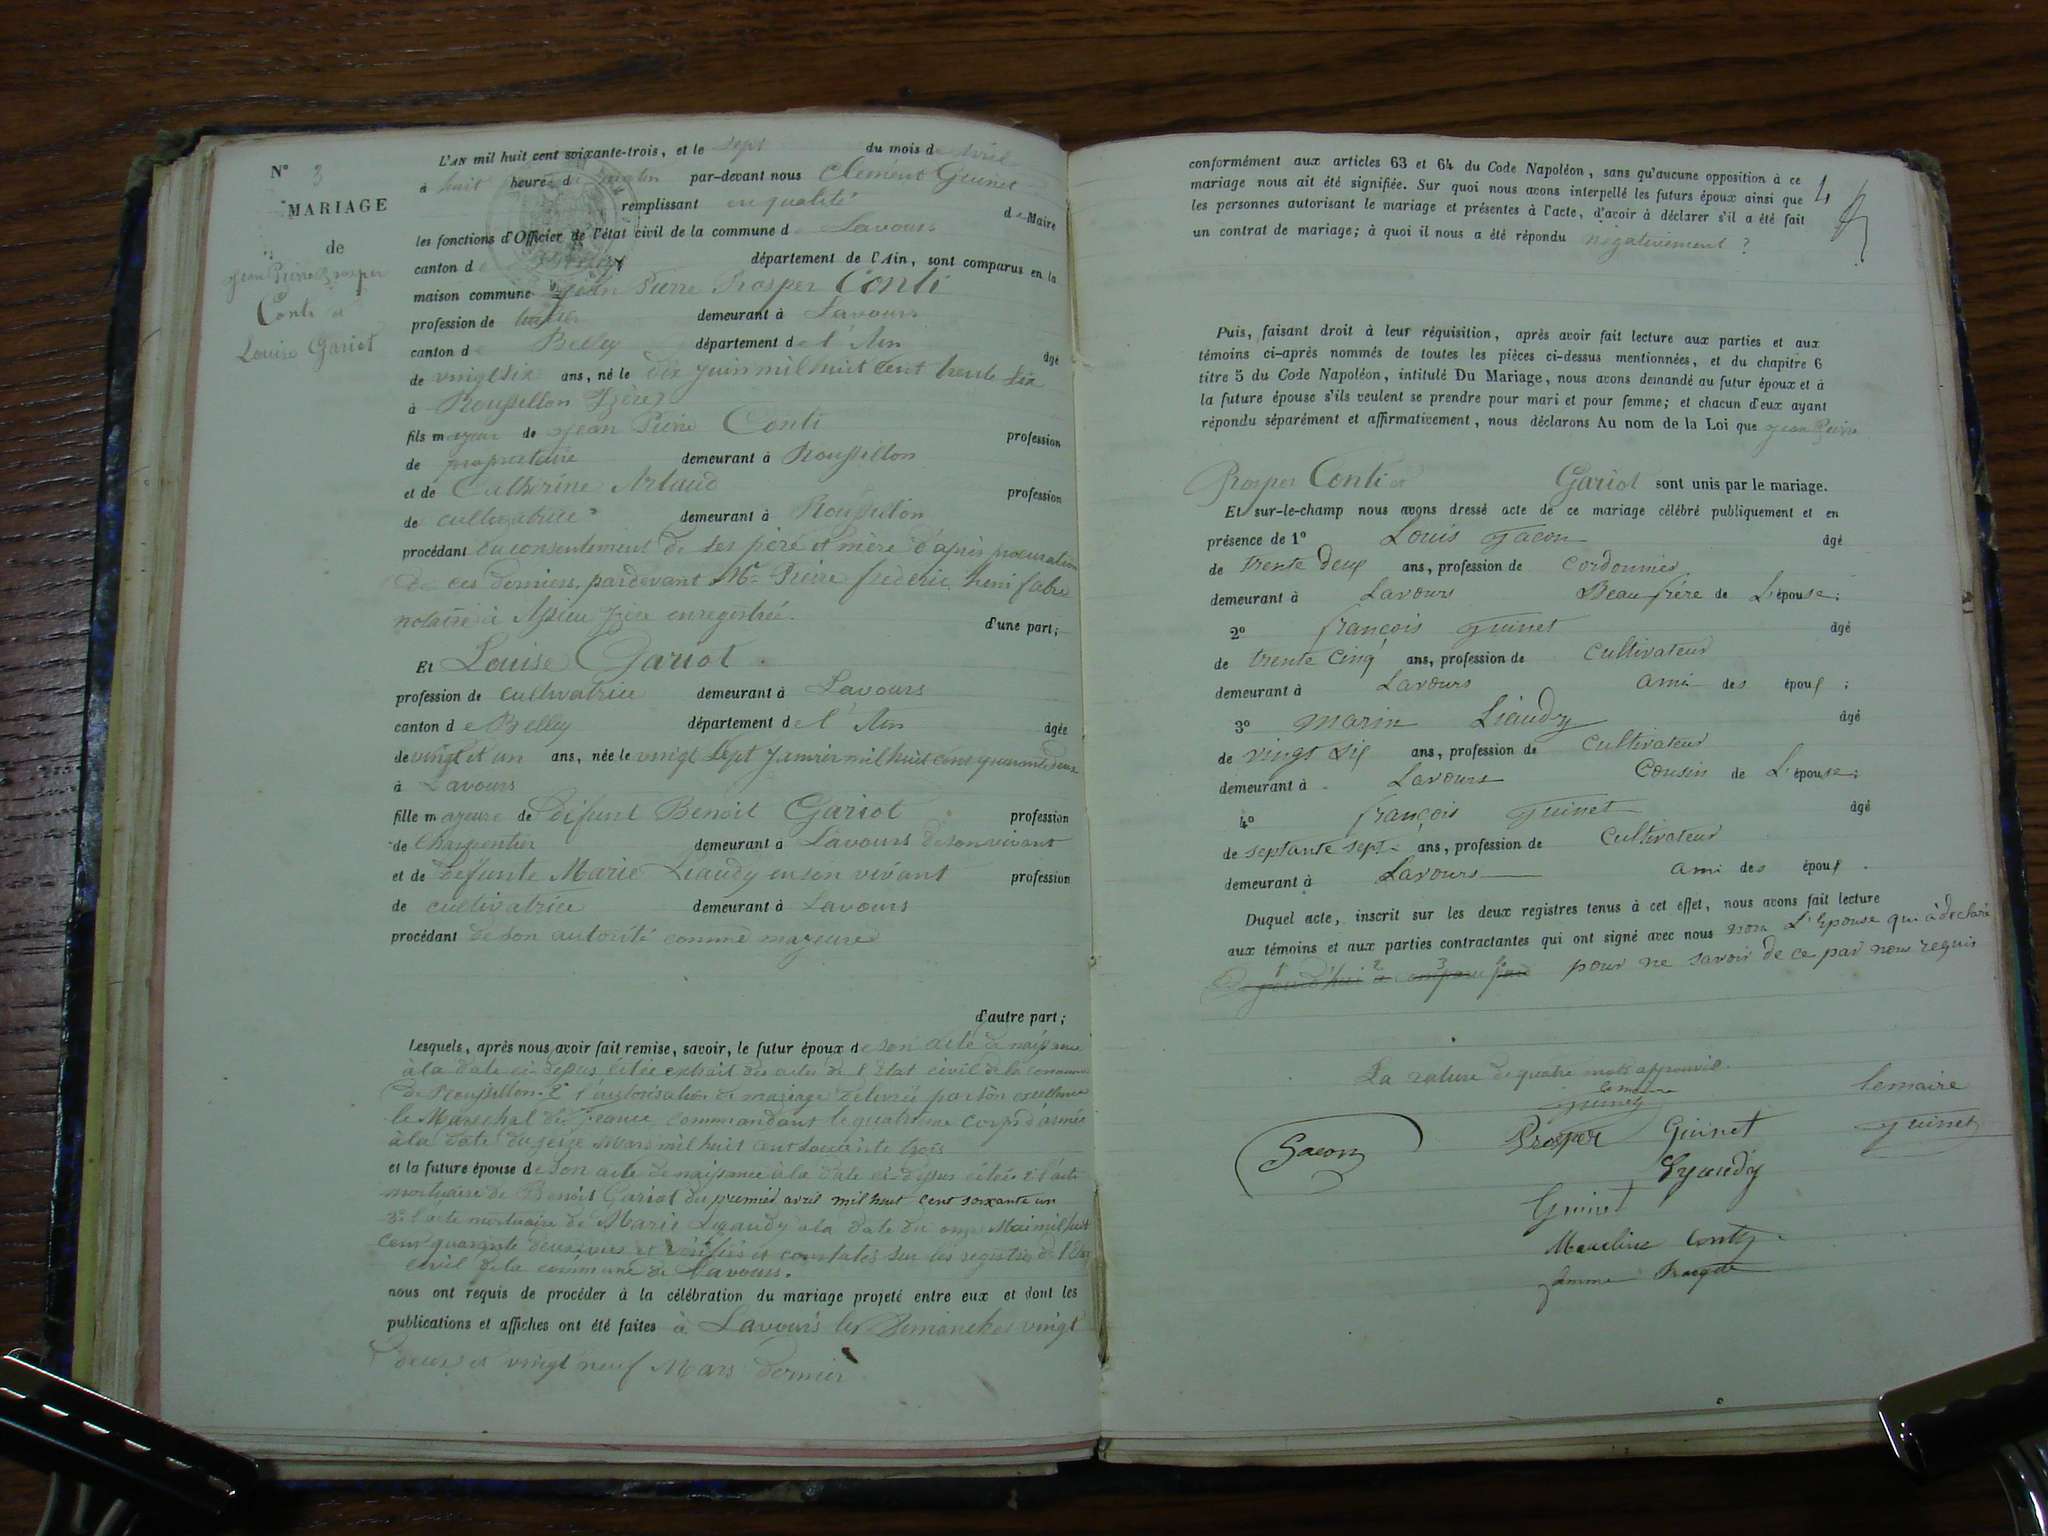 N° 3
MARIAGE
de
Jean Pierre Prosper
Conti et
Louise Gariot
L'AN mil huit cent soixante-trois, et le sept du mois d'avril
à huit heures du matin par-devant nous Clement Guinet
remplissant en qualité de Maire
les fonctions d'Officier de l'état civil de la commune de Lavours
canton de Belley département de l'Ain, sont comparus en la
maison commune Jean Pierre Prosper Conti
profession de demeurant à Lavours
canton de Belley département de l'Ain âgé
de vingt six ans, né le dix juin mil huit cent trente six
à Roussillon Isère
fils majeur de Jean Pierre Conti profession
de propriétaire demeurant à Roussillon
et de Catherine Artaud profession
de cultivatrice demeurant à Roussillon
procédant du consentement de ses père et mère d'après procuration
de ces derniers pardevant Me Pierre frédéric henri fabre
notaire à Assieu Isère enregistrée. d'une part;
Et Louise Gariot.
profession de cultivatrice demeurant à Lavours
canton de Belley département de l'Ain âgée
de vingt et un ans, née le vingt sept Janvier mil huit cent quarante deux
à Lavours
fille majeure de Défunt Benoit Gariot profession
de Charpentier demeurant à Lavours de son vivant
et de défunte Marie Liaudy en son vivant profession
de cultivatrice demeurant à Lavours
procédant de son autorité comme majeure
d'autre part;
Lesquels, après nous avoir fait remise, savoir, le futur époux de son acte de naissance
à la date ci-dessus citée extrait des actes de l'état civil de la commune
de Roussillon. 2° l'autorisation de mariage délivrée par son excellence
le Maréchal de France commandant le quatrième corps d'armée
à la date du seize Mars mil huit cent soixante trois
et la future épouse de son acte de naissance à la date ci-dessus citée 2° l'acte
mortuaire de Benoit Gariot du premier avril mil huit cent soixante un
3° l'acte mortuaire de Marie Liaudy a la date du onze Mai mil huit
cent quarante deux vus et vérifiés et constatés sur les registres de l'état
civil de la commune de Lavours.
nous ont requis de procéder à la célébration du mariage projeté entre eux et dont les
publications et affiches ont été faites à Lavours les Dimanches vingt
deux et vingt neuf Mars dernier
4
conformément aux articles 63 et 64 du Code Napoléon, sans qu'aucune opposition à ce
mariage nous ait été signifiée. Sur quoi nous avons interpellé les futurs époux ainsi que
les personnes autorisant le mariage et présentes à l'acte, d'avoir à déclarer s'il a été fait
un contrat de mariage; à quoi il nous a été répondu négativement ?
Puis, faisant droit à leur réquisition, après avoir fait lecture aux parties et aux
témoins ci-après nommés de toutes les pièces ci-dessus mentionnées, et du chapitre 6
titre 5 du Code Napoléon, intitulé Du Mariage, nous avons demandé au futur époux et à
la future épouse s'ils veulent se prendre pour mari et pour femme; et chacun d'eux ayant
répondu séparément et affirmativement, nous déclarons Au nom de la Loi que Jean Pierre
Prosper Conti et Gariot sont unis par le mariage.
Et sur-le-champ nous avons dressé acte de ce mariage célébré publiquement et en
présence de 1° Louis Jacon âgé
de trente deux ans, profession de Cordonnier
demeurant à Lavours Beau frère de L'épouse;
2° françois Guinet âgé
de trente cinq ans, profession de Cultivateur
demeurant à Lavours ami des époux;
3° Marin Liaudy âgé
de vingt six ans, profession de Cultivateur
demeurant à Lavours Cousin de L'épouse;
4° françois Guinet âgé
de septante sept ans, profession de Cultivateur
demeurant à Lavours ami des époux.
Duquel acte, inscrit sur les deux registres tenus à cet effet, nous avons fait lecture
aux témoins et aux parties contractantes qui ont signé avec nous non L'Epouse qui à declaré
pour ne savoir de ce par nous requis
La rature de quatre mots approuvée.
le maire
Guinet
le maire
Guinet
Jacon
Prosper
Guinet
Lyaudy
Guinet
Conty